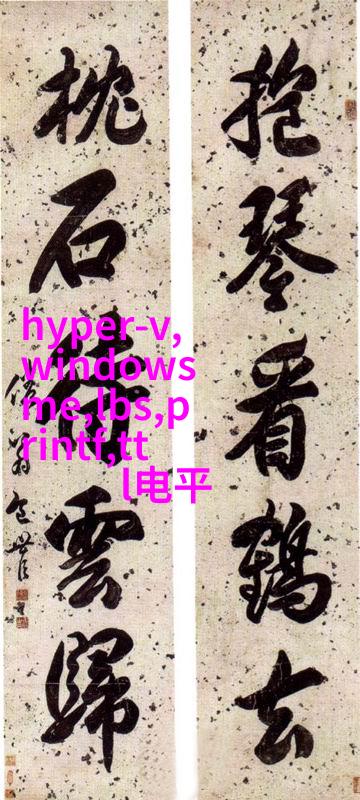 抱琴看鶴去
枕石待雲歸
倦翁包世臣
hyper-v,
windows
me,lbs,p
rintf,tt
l电平